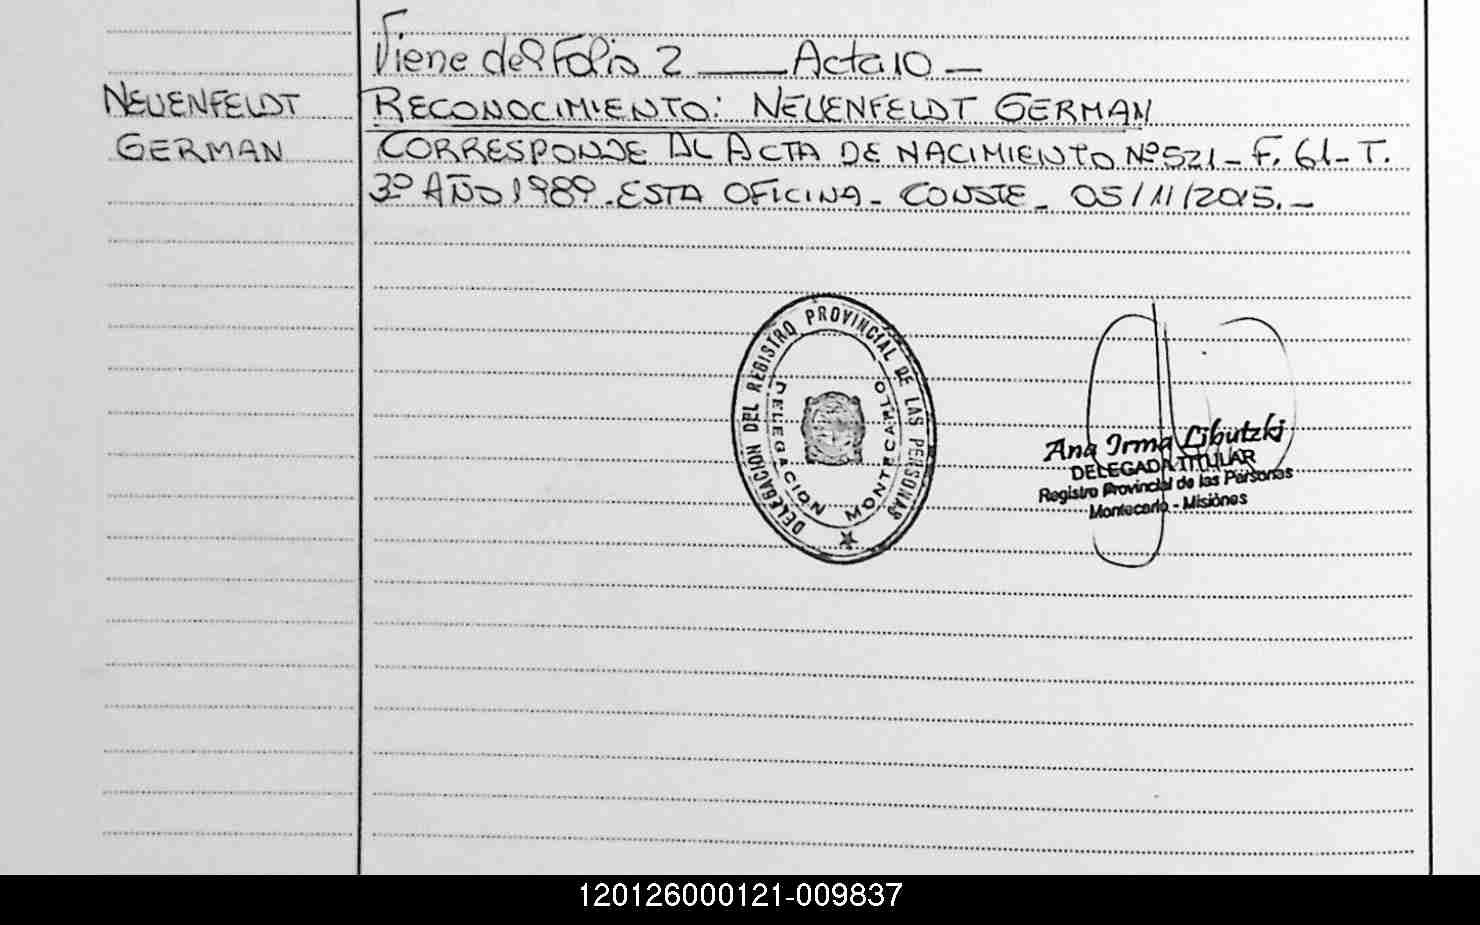 Viene del Folio 2 ___ Acta 10 —
NEUENFELDT
GERMAN
RECONOCIMIENTO: NEUENFELDT GERMAN
CORRESPONDE AL ACTA DE NACIMIENTO Nº 521 - F. 61 - T.
3º AÑO 1989. ESTA OFICINA - CONSTE - 05/11/2015. -
DELEGACIÓN DEL REGISTRO PROVINCIAL DE LAS PERSONAS
DELEGACION MONTECARLO
Ana Irma Libutzki
DELEGADA TITULAR
Registro Provincial de las Personas
Montecarlo - Misiones
120126000121-009837